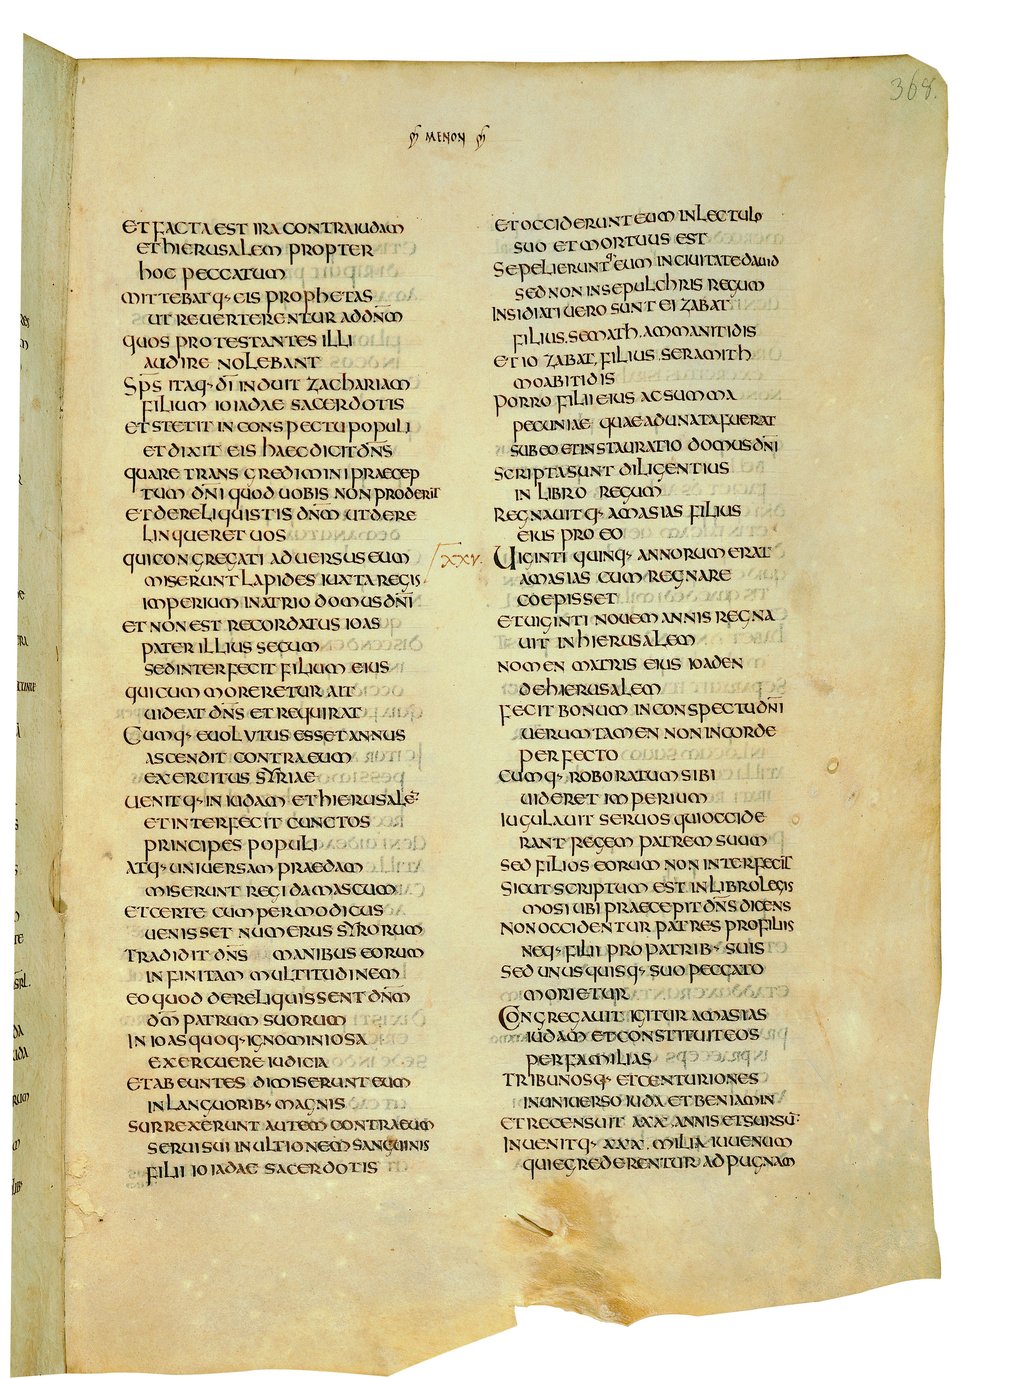 368.
MENON
ET FACTA EST IRA CONTRA IUDAM
ET HIERUSALEM PROPTER
HOC PECCATUM
MITTEBATQ· EIS PROPHETAS
UT REUERTERENTUR AD DN̄M
QUOS PROTESTANTES ILLI
AUDIRE NOLEBANT
SP̄S ITAQ· DĪ INDUIT ZACHARIAM
FILIUM IOIADAE SACERDOTIS
ET STETIT IN CONSPECTU POPULI
ET DIXIT EIS HAEC DICIT DN̄S
QUARE TRANSGREDIMINI PRAECEP
TUM DN̄I QUOD UOBIS NON PRODERIT
ET DERELIQUISTIS DN̄M UT DERE
LINQUERET UOS
QUI CONGREGATI ADUERSUS EUM
MISERUNT LAPIDES IUXTA REGIS
IMPERIUM IN ATRIO DOMUS DN̄I
ET NON EST RECORDATUS IOAS
PATER ILLIUS SECUM
SED INTERFECIT FILIUM EIUS
QUI CUM MORERETUR AIT
UIDEAT DN̄S ET REQUIRAT
CUMQ· EUOLUTUS ESSET ANNUS
ASCENDIT CONTRA EUM
EXERCITUS SYRIAE
UENITQ· IN IUDAM ET HIERUSALĒ
ET INTERFECIT CUNCTOS
PRINCIPES POPULI
ATQ· UNIUERSAM PRAEDAM
MISERUNT REGI DAMASCUM
ET CERTE CUM PERMODICUS
UENISSET NUMERUS SYRORUM
TRADIDIT DN̄S MANIBUS EORUM
INFINITAM MULTITUDINEM
EO QUOD DERELIQUISSENT DN̄M
DM̄ PATRUM SUORUM
IN IOAS QUOQ· IGNOMINIOSA
EXERCUERE IUDICIA
ET ABEUNTES DIMISERUNT EUM
IN LANGUORIB· MAGNIS
SURREXERUNT AUTEM CONTRA EUM
SERUI SUI IN ULTIONEM SANGUINIS
FILII IOIADAE SACERDOTIS
ET OCCIDERUNT EUM IN LECTULO
SUO ET MORTUUS EST
SEPELIERUNTQ· EUM IN CIUITATE DAUID
SED NON IN SEPULCHRIS REGUM
INSIDIATI UERO SUNT EI ZABAT
FILIUS. SEMATH. AMMANITIDIS
ET IO ZABAT. FILIUS SERAMITH
MOABITIDIS
PORRO FILII EIUS AC SUMMA
PECUNIAE QUAE ADUNATA FUERAT
SUB EO ET INSTAURATIO DOMUS DN̄I
SCRIPTA SUNT DILIGENTIUS
IN LIBRO REGUM
REGNAUITQ· AMASIAS FILIUS
EIUS PRO EO
XXV. UIGINTI QUINQ· ANNORUM ERAT
AMASIAS CUM REGNARE
COEPISSET
ET UIGINTI NOUEM ANNIS REGNA
UIT IN HIERUSALEM
NOMEN MATRIS EIUS IOADEN
DE HIERUSALEM
FECIT BONUM IN CONSPECTU DN̄I
UERUMTAMEN NON IN CORDE
PERFECTO
CUMQ· ROBORATUM SIBI
UIDERET IMPERIUM
IUGULAUIT SERUOS QUI OCCIDE
RANT REGEM PATREM SUUM
SED FILIOS EORUM NON INTERFECIT
SICUT SCRIPTUM EST IN LIBRO LEGIS
MOSI UBI PRAECEPIT DN̄S DICENS
NON OCCIDENTUR PATRES PRO FILIIS
NEQ· FILII PRO PATRIB· SUIS
SED UNUSQUISQ· SUO PECCATO
MORIETUR
CONGREGAUIT IGITUR AMASIAS
IUDAM ET CONSTITUIT EOS
PER FAMILIAS
TRIBUNOSQ· ET CENTURIONES
IN UNIUERSO IUDA ET BENIAMIN
ET RECENSUIT A XX. ANNIS ET SURSŪ
INUENITQ· XXX. MILIA IUUENUM
QUI EGREDERENTUR AD PUGNAM